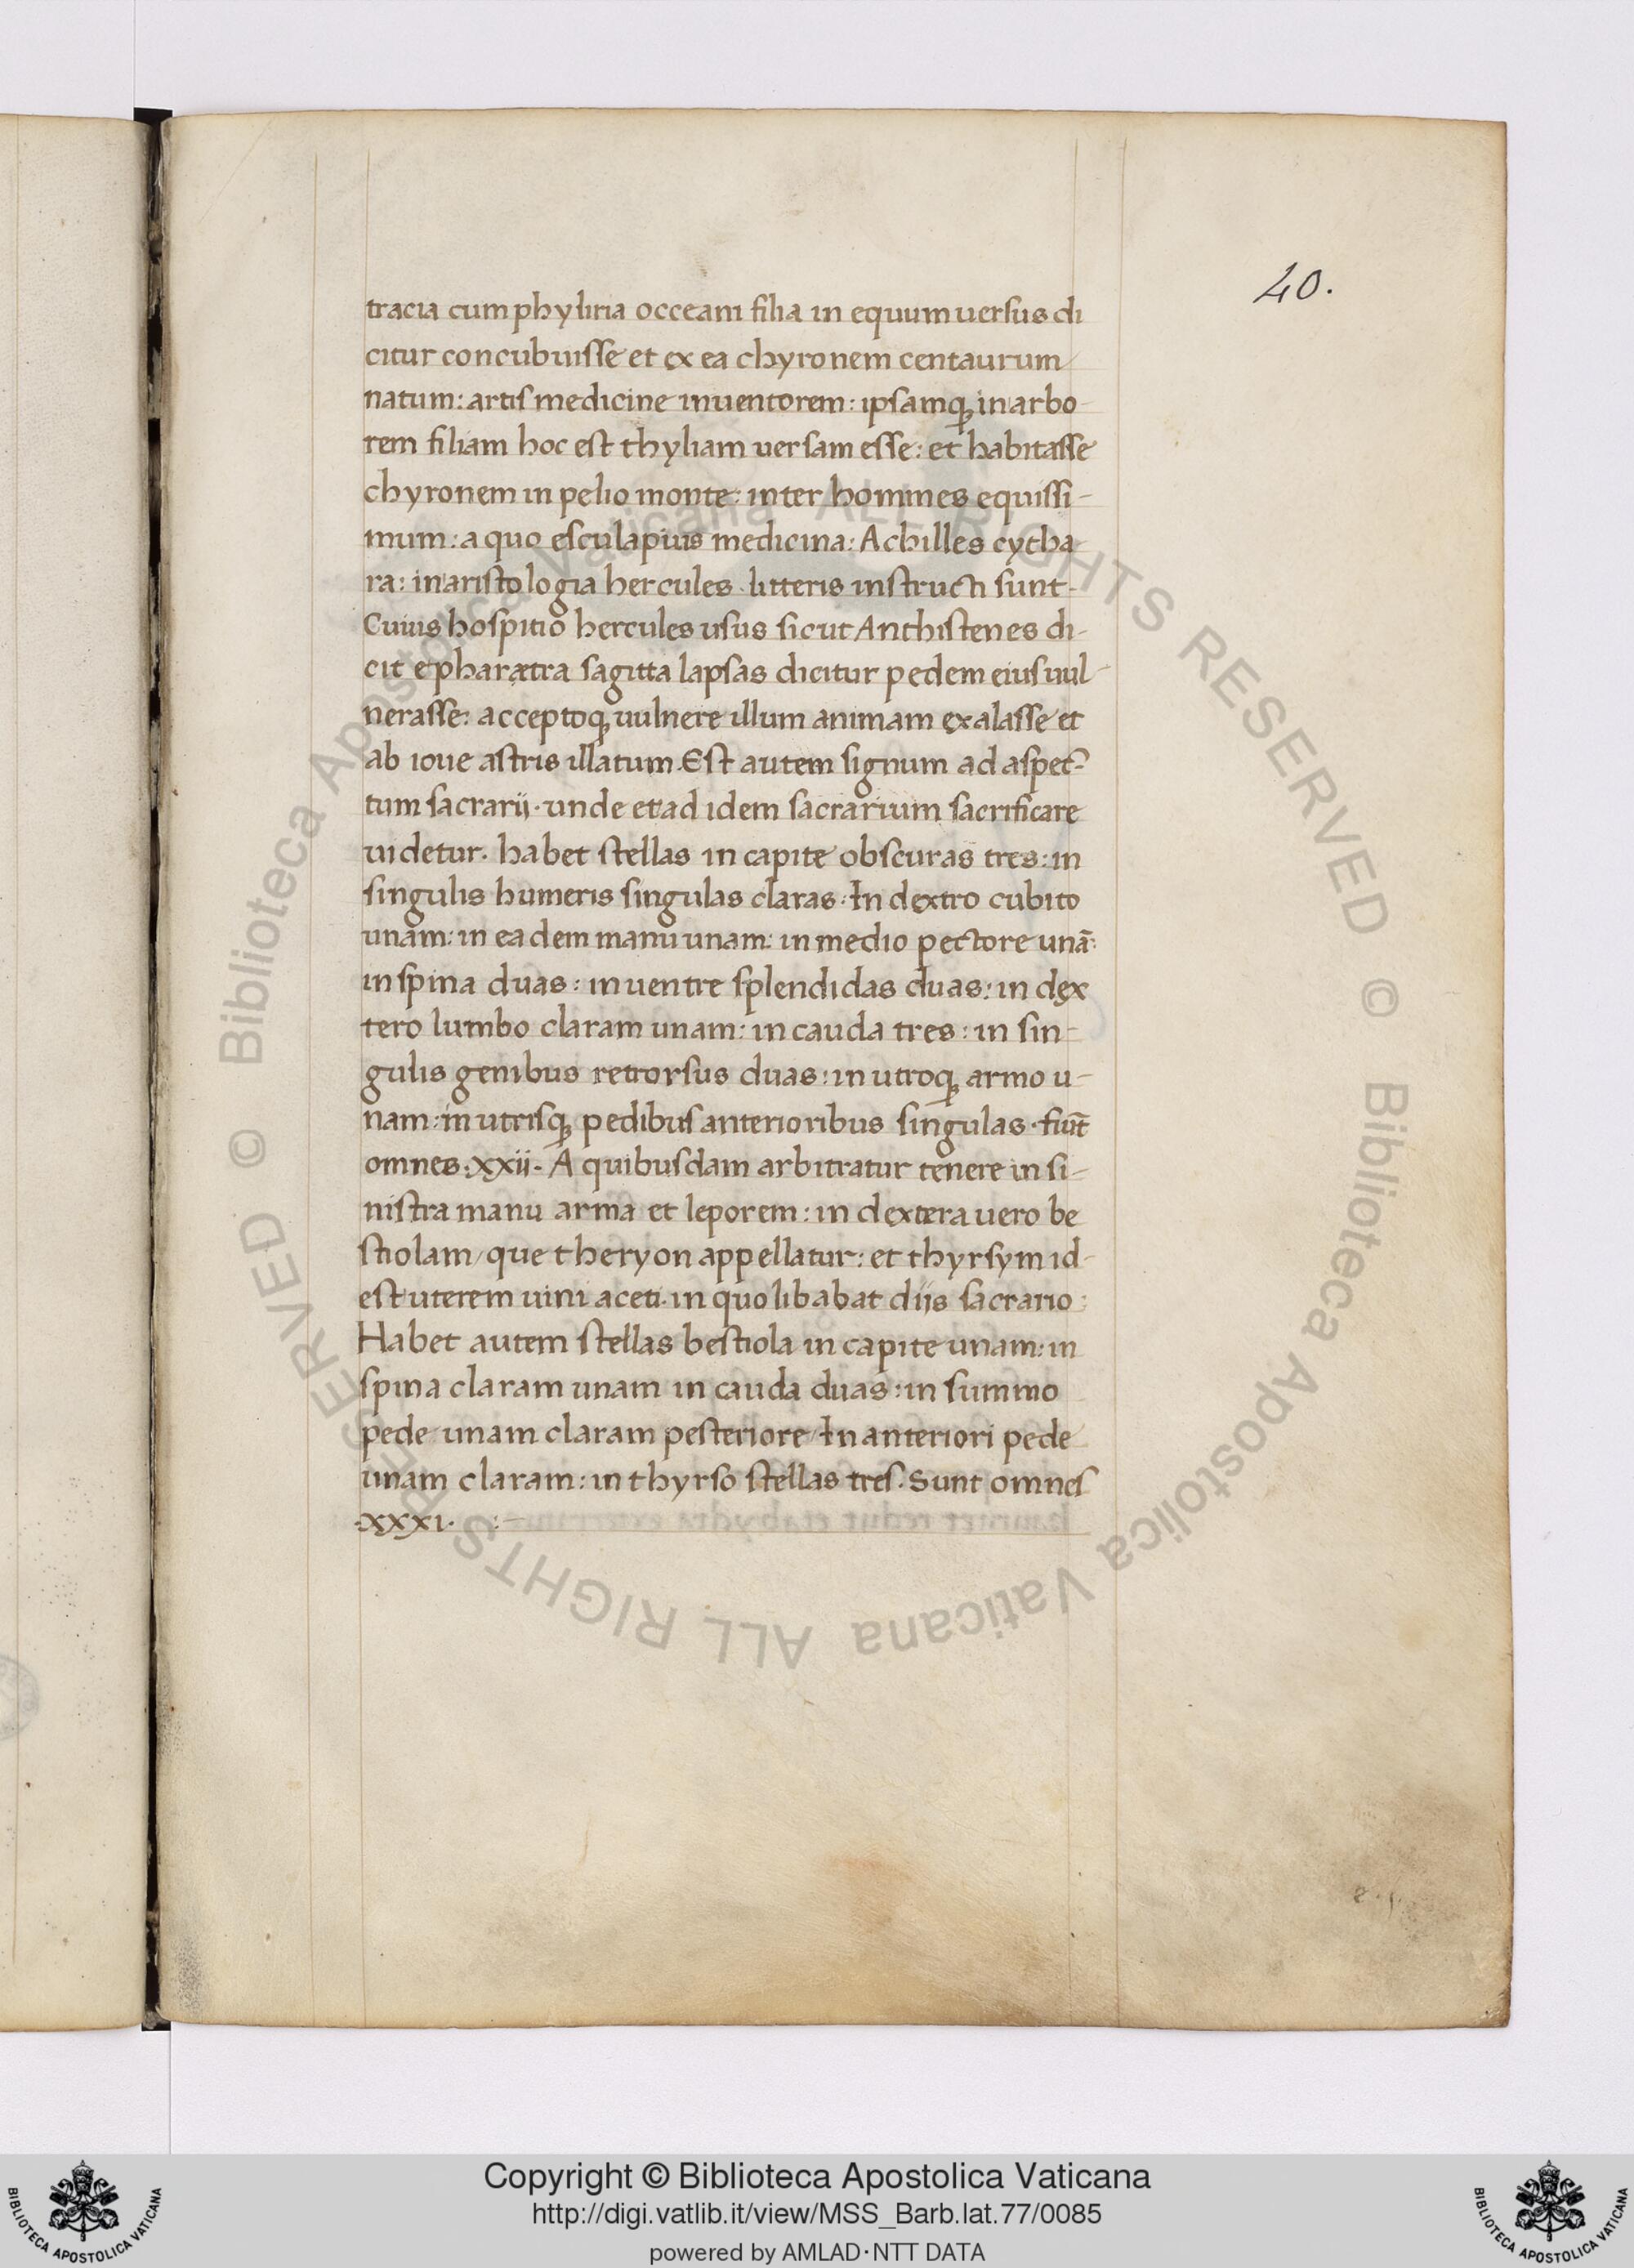 40.
tracia cum phyliria occeani filia in equum uersus di
citur concubuisse et ex ea chyronem centaurum
natum: artis medicine inuentorem: ipsamq; in arbo-
rem filiam hoc est thyliam uersam esse: et habitasse
chyronem in pelio monte: inter homines equissi-
mum: a quo esculapius medicina: Achilles cytha-
ra: in aristologia hercules. litteris instructi sunt.
Cuius hospitio hercules usus sicut Anthistenes di-
cit e pharætra sagitta lapsas dicitur pedem eius uul-
nerasse: acceptoq; uulnere illum animam exalasse et
ab ioue astris illatum. Est autem signum ad aspec-
tum sacrarij. unde et ad idem sacrarium sacrificare
uidetur. habet stellas in capite obscuras tres: in
singulis humeris singulas claras. In dextro cubito
unam: in eadem manu unam: in medio pectore unā:
in spina duas: in uentre splendidas duas: in dex
tero lumbo claram unam: in cauda tres: in sin-
gulis genibus retrorsus duas: in utroq; armo u-
nam: in utrisq; pedibus anterioribus singulas. fiūt
omnes. xxii. A quibusdam arbitratur tenere in si-
nistra manu arma et leporem: in dextera uero be
stiolam/ que theryon appellatur: et thyrsym id-
est uterem uini aceti. in quo libabat diis sacrario:
Habet autem stellas bestiola in capite unam: in
spina claram unam in cauda duas: in summo
pede unam claram pesteriore/ In anteriori pede
unam claram: in thyrso stellas tres. Sunt omnes
.xxxi. :-
© Biblioteca Apostolica Vaticana ALL RIGHTS RESERVED
© Biblioteca Apostolica Vaticana ALL RIGHTS RESERVED
BIBLIOTECA APOSTOLICA VATICANA
Copyright © Biblioteca Apostolica Vaticana
http://digi.vatlib.it/view/MSS_Barb.lat.77/0085
powered by AMLAD·NTT DATA
BIBLIOTECA APOSTOLICA VATICANA